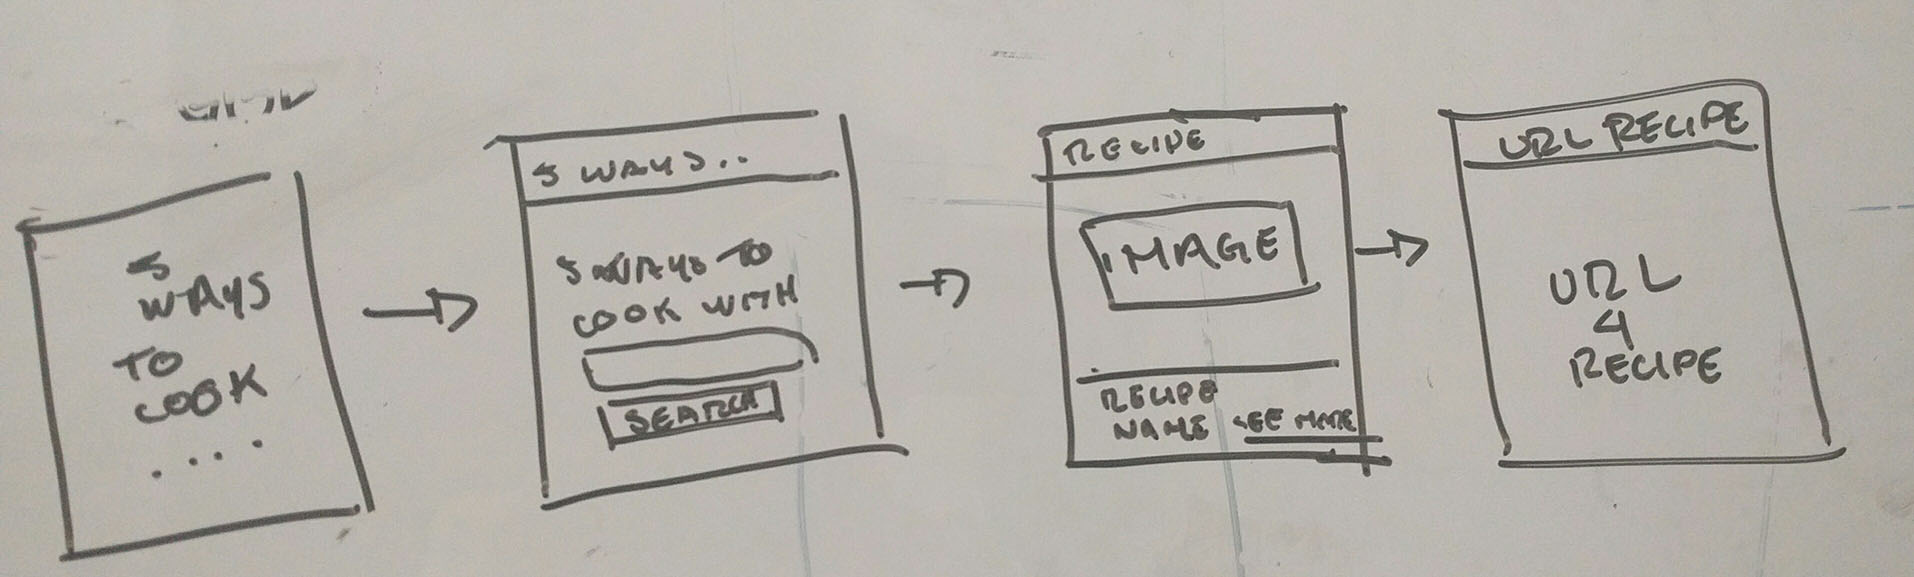 5
WAYS
TO
COOK
....
5 WAYS..
5 WAYS TO
COOK WITH
SEARCH
RECIPE
IMAGE
RECIPE
NAME SEE MORE
URL RECIPE
URL
4
RECIPE